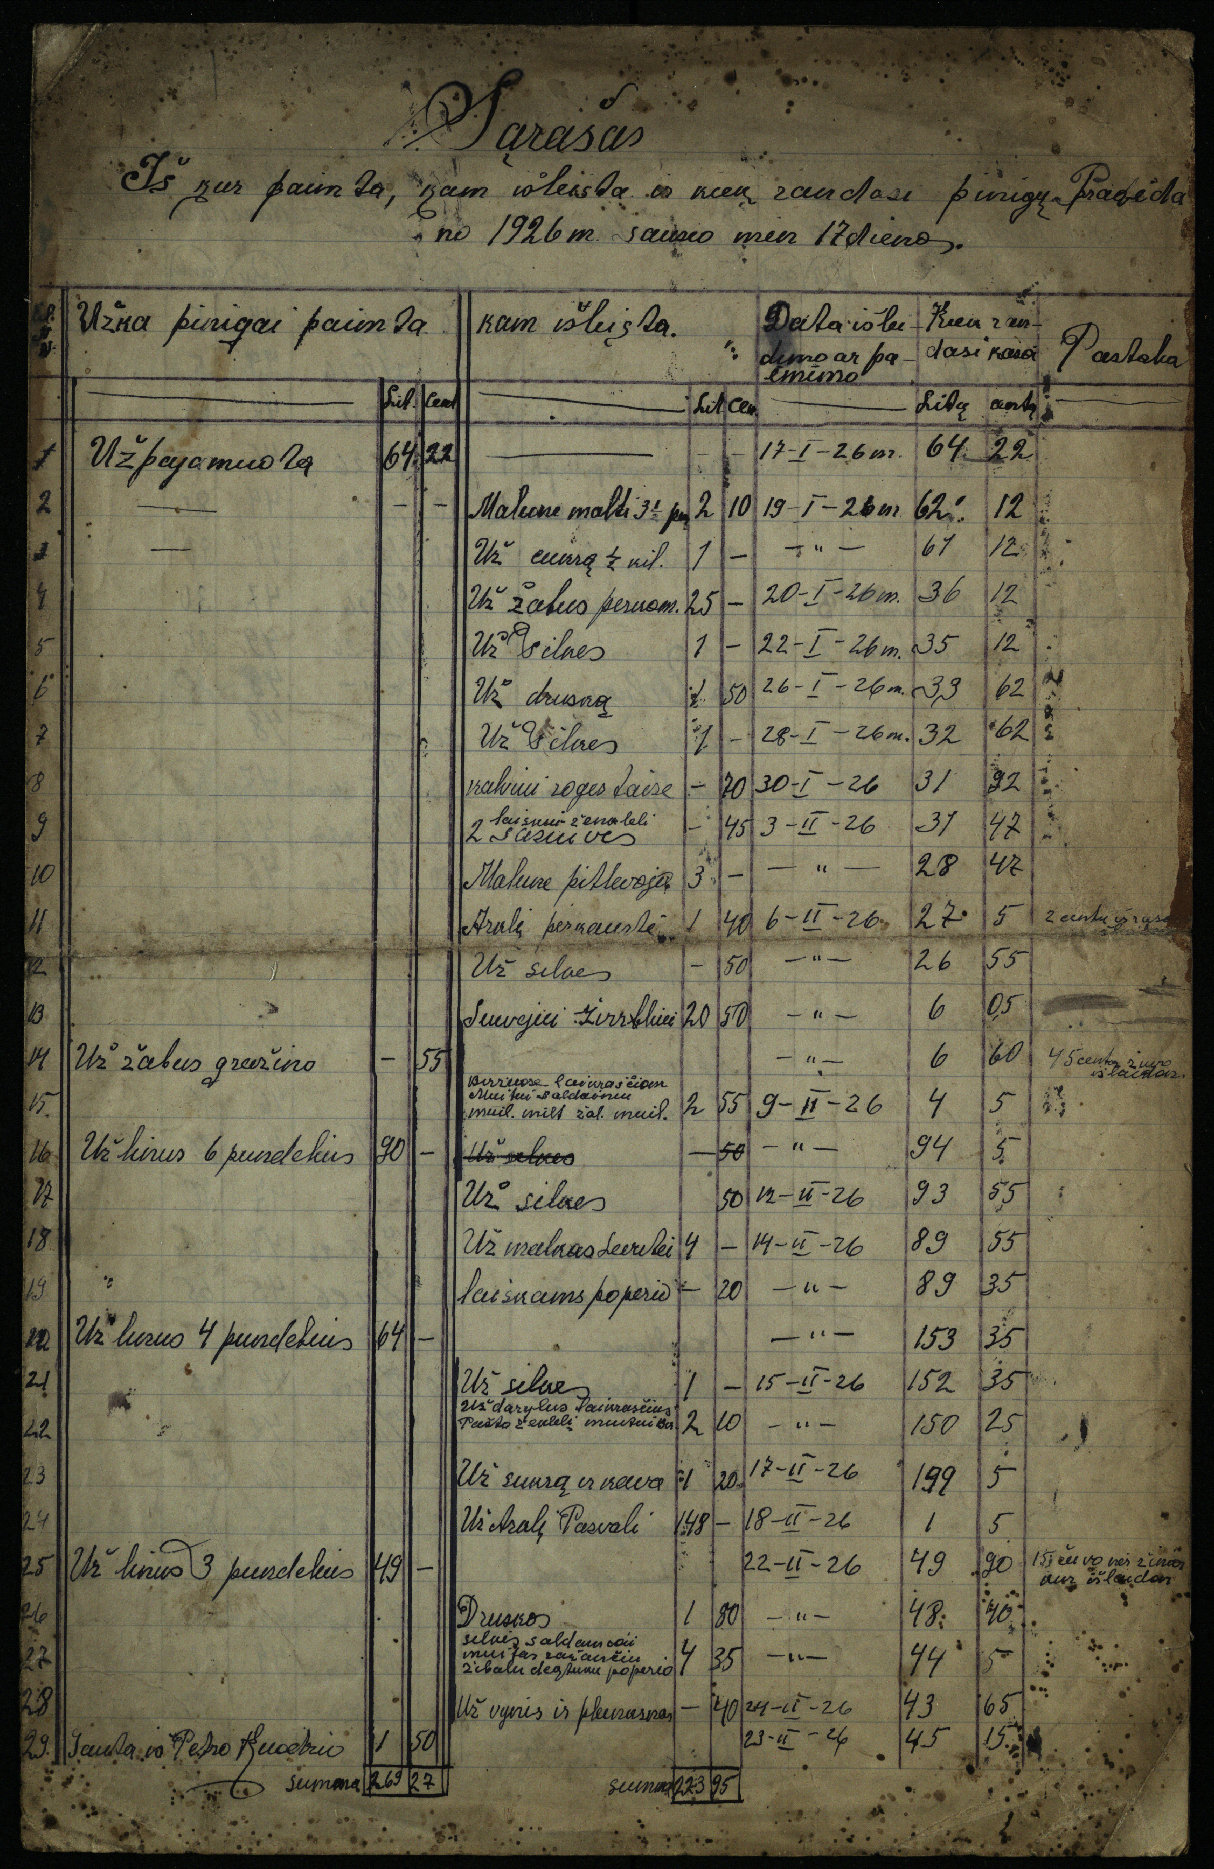 Sąrašas
Iš kur paimta, kam išleista ir kiek randasi pinigų. Pradėda
no 1926 m. sausio mėn 17 dienos.
Užka pinigai paimta kam išleista. Data išlei- Kiek ran- Pastaba
dimo ar pa- dasi kasoi
ėmimo
Lit. Cent Lit Cen Litų centų
1 Už pajamuota 64 22 — — — 17-I-26 m. 64 22
2 — — — Malune malti 3 p. 2 10 19-I-26 m 62 12
3 — Už cukrą ½ kil. 1 — — " — 61 12
4 Už žabus pernom. 25 — 20-I-26 m. 36 12
5 Už Silkes 1 — 22-I-26 m. 35 12
6 Už druską 1 50 26-I-26 m. 33 62
7 Už Silkes 1 — 28-I-26 m. 32 62
8 kalviui roges taise — 70 30-I-26 31 92
9 laiškui ženkleli
2 sąsiuves — 45 3-II-26 31 47
10 Malune pitlevojo 3 — — " — 28 47
11 Arklį perkaustė 1 40 6-II-26 27 5 2 centu
12 Už silkes — 50 — " — 26 55
13 Siuvejui 20 50 — " — 6 05
14 Už žabus gražino — 55 — " — 6 60 45 centu žuvo
15 Birziuose laikrasčiam
Muitui saldainiu
muil. milt žal. muil. 2 55 9-II-26 4 5
16 Už linus 6 pundelius 90 — Už silkes — 50 — " — 94 5
17 Už silkes 50 12-II-26 93 55
18 Už malkas 4 — 14-II-26 89 55
19 " laiskams poperio — 20 — " — 89 35
20 Už linus 4 pundelius 64 — — " — 153 35
21 Už silkes 1 — 15-II-26 152 35
22 Už darylus laikrasčius
Pašto ženkleli 2 10 — " — 150 25
23 Už sukrą ir kava 1 20 17-II-26 199 5
24 Už Arklį Pasvali 148 — 18-II-26 1 5
25 Už linus 3 pundelius 49 — 22-II-26 49 90 žuvo nes žinios
kur išleidau
26 Druskos 1 80 — " — 48 40
27 silkės saldainiai
žibalu degtuku poperio 4 35 — " — 44 5
28 Už vynis ir plunksnas — 40 24-II-26 43 65
29. Gauta iš Petro 1 50 23-II-26 45 15
summa 269 27 summa 223 95